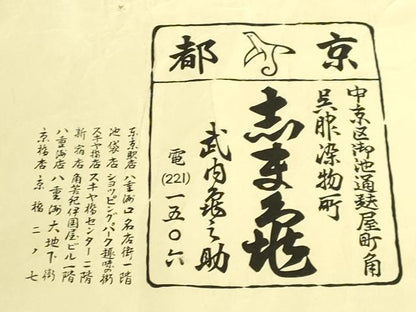 京都
中京区御池通麩屋町角
呉服染物所
志ま亀
武内亀之助
電(221)一五〇六
東京駅店 八重洲口名店街一階
池袋店 ショッピングパーク趣味の街
スキヤ橋店 スキヤ橋センター二階
新宿店 角筈紀伊國屋ビル一階
八重洲店 八重洲大地下街
京橋店 京橋二ノ七